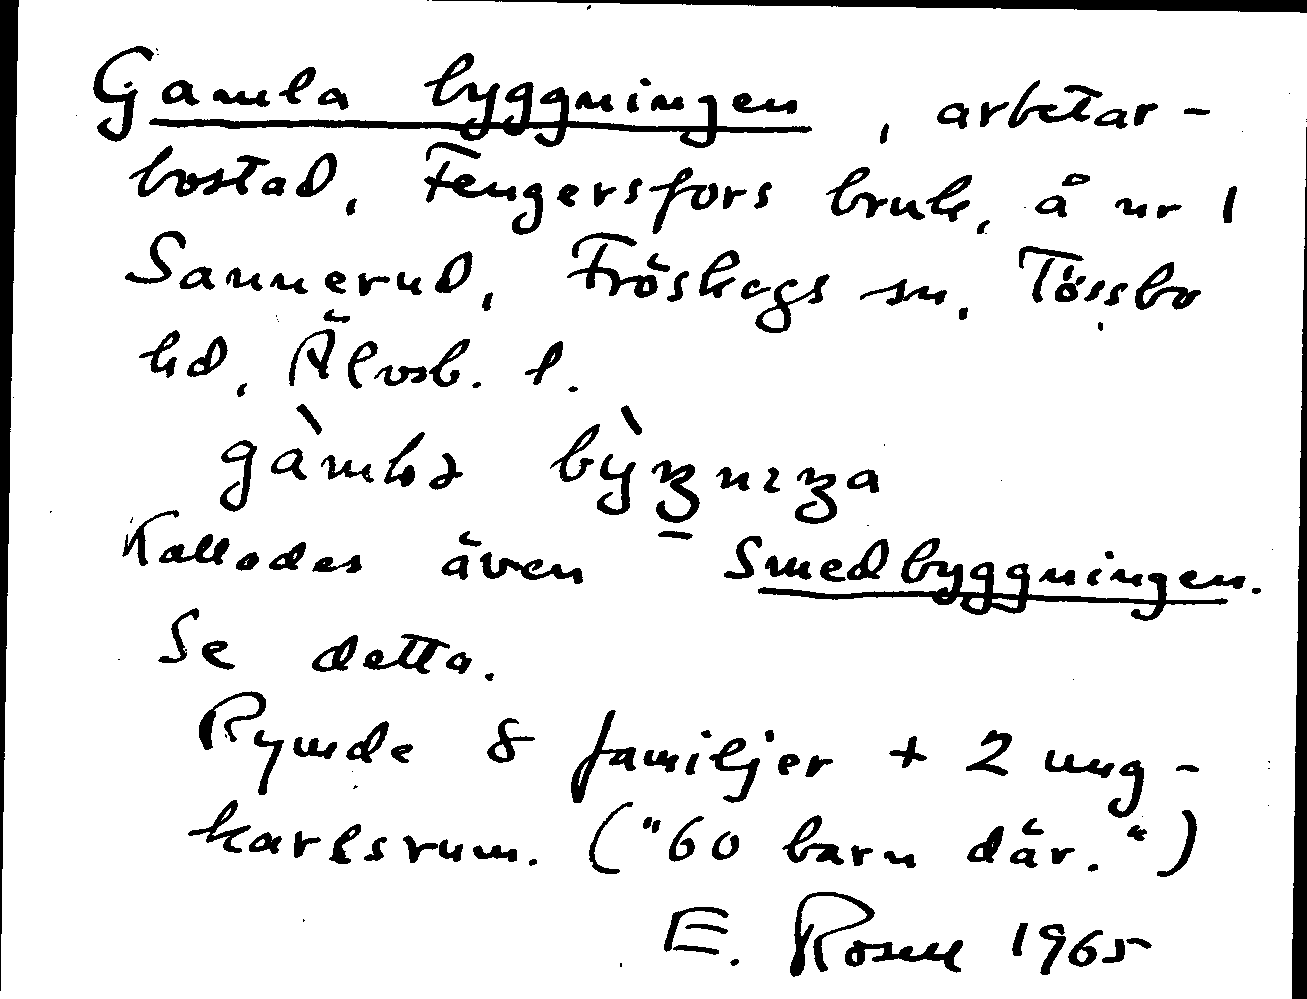 Gamla byggningen, arbetar-
bostad, Fengersfors bruk, å nr 1
Sannerud, Fröskogs sn, Tössbo
hd, Älvsb. l.
Kallades även Smedbyggningen.
Se detta.
Rymde 8 familjer + 2 ung-
karlsrum. ("60 barn där.")
E. Rosell 1965